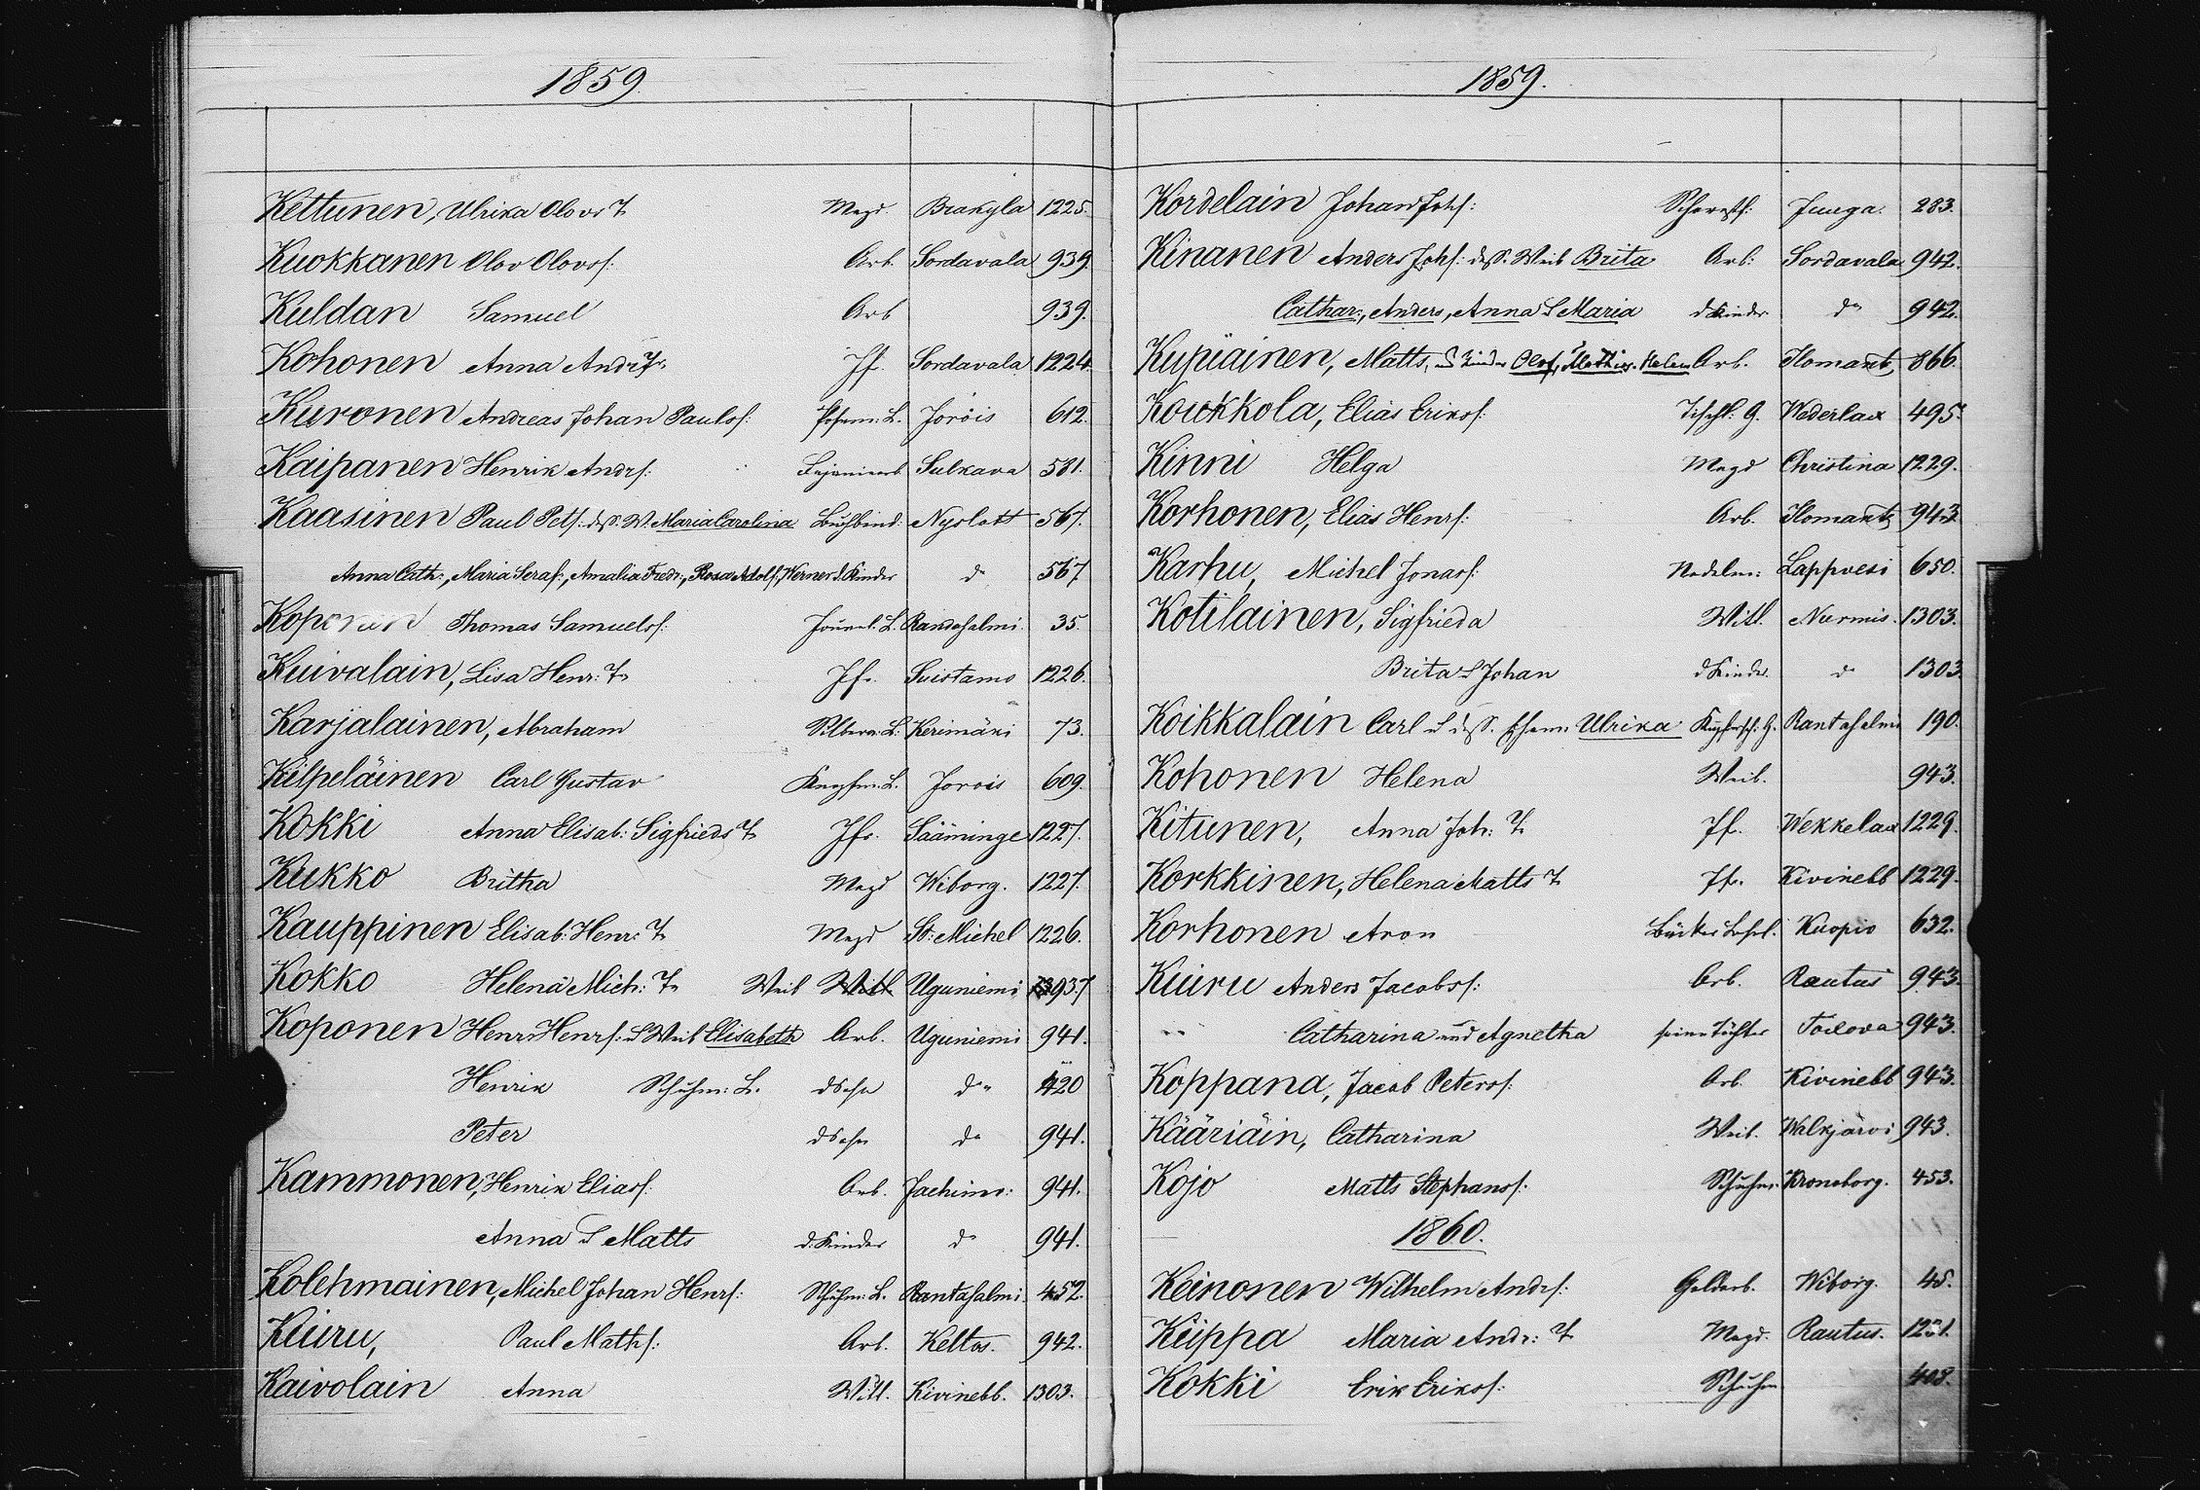 1859.
Kettunen, Ulrika Olovs T. Magd. Brakyla 1225.
Kuokkanen Olov Olovs: Arb. Sordavala 939.
Kuldan Samuel Arb 939.
Kohonen Anna Andr: T. Jf. Sordavala 1224.
Kuronen Andreas Johan Pauls: L. Jorois 612.
Kaipanen Henrik Andrs: Sulkava 581.
Kaasinen Paul Pets: dess. W. Maria Carolina Buchbind. Nyslott 567.
Anna Cath:, Maria Seraf:, Amalia Fredr:, Rosa Adolf:, Werner d. Kinder do 567
Koponen Thomas Samuels: L. Randasalmi 35.
Kuivalain, Lisa Henr: T. Jfr. Suistamo 1226.
Karjalainen, Abraham Silberar: L. Kerimäki 73.
Kilpeläinen Carl Gustav L. Jorois 609.
Kokki Anna Elisab: Sigfrieds T. Jfr. Sääminge 1227.
Kukko Britha Magd Wiborg. 1227.
Kauppinen Elisab: Henr: T. Magd St: Michel 1226.
Kokko Helena Mich: T. Weib Witt. Uguniemi 937
Koponen Henr: Henrs: u Weib Elisabeth Arb. Uguniemi 941.
Henrik Schuhm: L. d Sohn do 420
Peter d Sohn do 941.
Kammonen, Henrik Elias: Arb. Jachims: 941.
Anna u Matts d. Kinder do 941.
Kolehmainen, Michel Johan Henrs: Schuhm: L. Rantasalmi 452.
Kiuru, Paul Maths: Arb. Keltos. 942.
Kaivolain Anna Witt. Kivinebb. 1303.
1859.
Kordelain Johan Johs: Junga. 283.
Kinanen Anders Johs: dess. Weib Brita Arb: Sordavala 942.
Cathar:, Anders, Anna u Maria d Kinder do 942.
Kupiainen, Matts, u Kinder Olof, Helena Arb. Ilomants 866.
Koukkola, Elias Eriks: Tischl: G. Wederlax 495.
Kinni Helga Magd Christina 1229.
Korhonen, Elias Henrs: Arb. Ilomants 943.
Karhu, Michel Jonas: Nadelm: Lappvesi 650.
Kotilainen, Sigfrieda Witt. Nurmis. 1303.
Brita u Johan d Kinder. do 1303.
Koikkalain Carl u dess. Ulrika Kupfersch: G. Rantasalmi 190.
Kohonen Helena Weib. 943.
Kitunen, Anna Joh: T. Jf. Wekkelax 1229.
Korkkinen, Helena Matts T. Jfr. Kivinebb 1229.
Korhonen Aron Bäcker Lehrl. Kuopio 632.
Kiuru Anders Jacobs: Arb. Rautus 943.
" Catharina und Agnetha seine Töchter 943.
Koppana, Jacob Peters: Arb. Kivinebb 943.
Kääriäin, Catharina Weib. Walkjärvi 943.
Kojo Matts Stephans: Schuhm: Kronoborg. 453.
1860.
Keinonen Wilhelm Andrs: Goldarb. Wiborg. 45.
Kuippa Maria Andr: T. Magd. Rautus.
Kokki Erik Eriks: Schuhm 408.